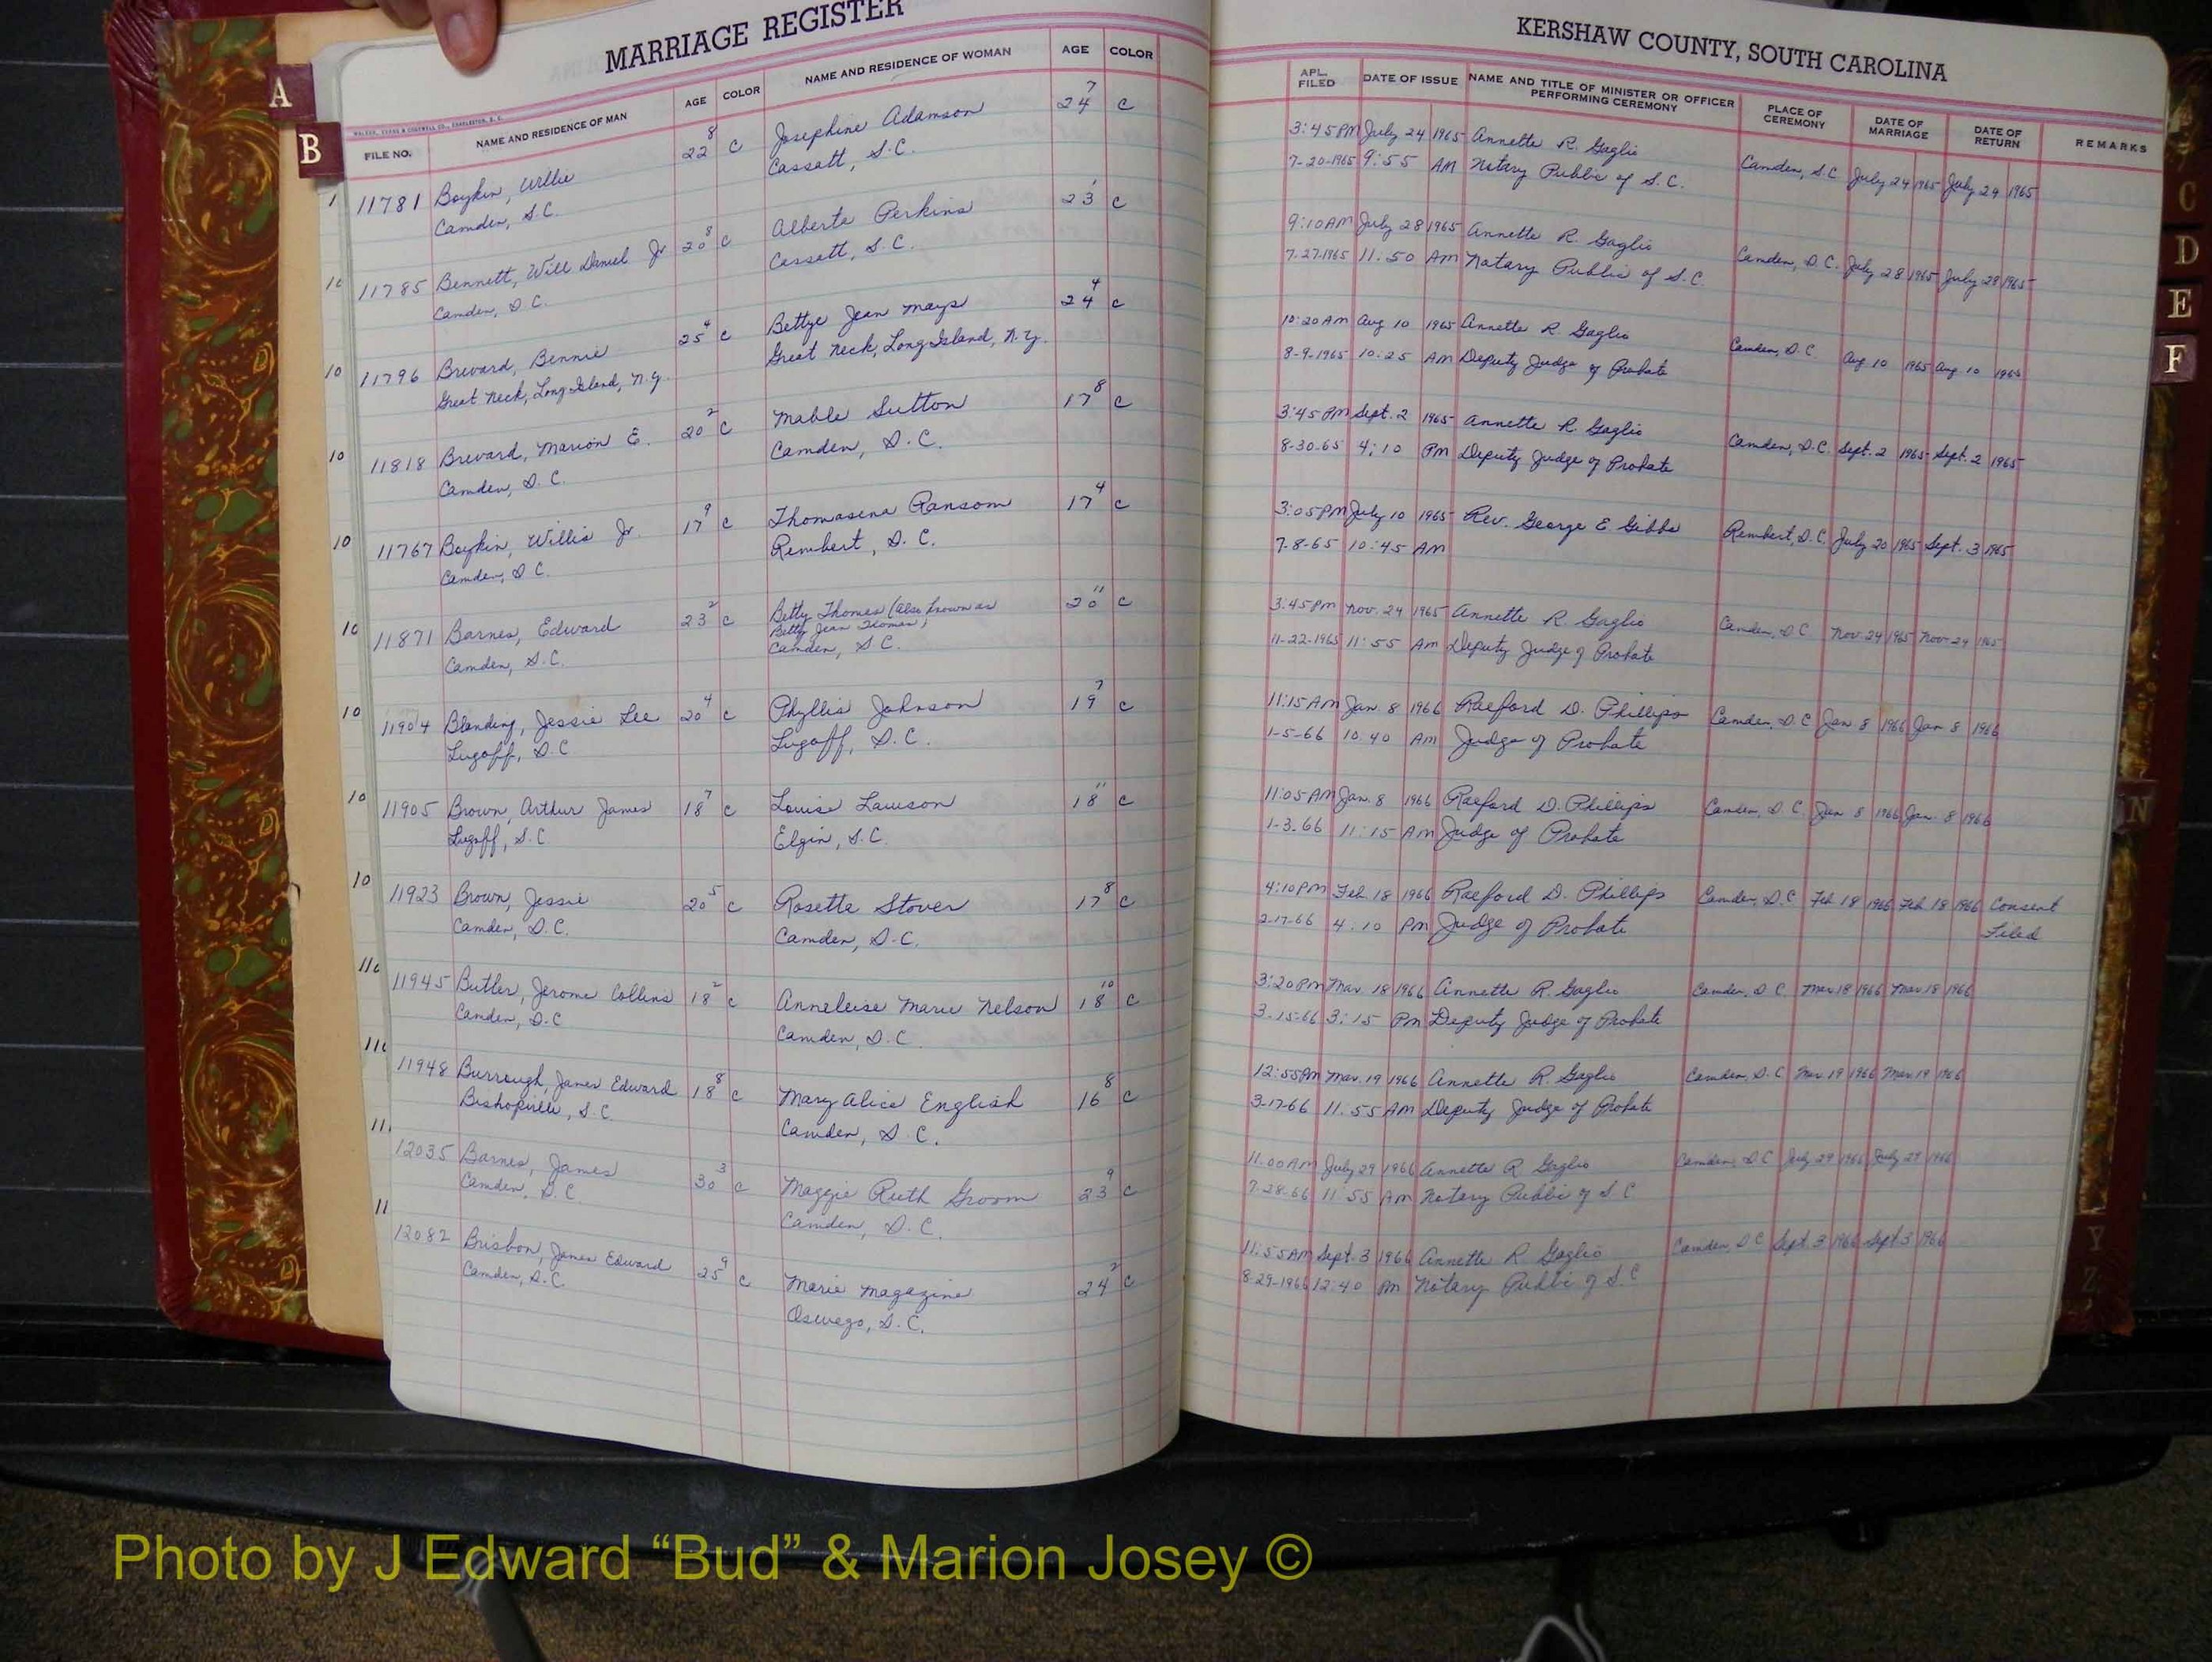 MARRIAGE REGISTER
WALKER, EVANS & COGSWELL CO., CHARLESTON, S. C.
FILE NO. NAME AND RESIDENCE OF MAN AGE COLOR NAME AND RESIDENCE OF WOMAN AGE COLOR
A
B
11781 Boykin, Willie 22 8 C Josephine Adamson 24 7 C
Camden, S.C. Cassatt, S.C.
11785 Bennett, Will Daniel Jr. 20 8 C Alberta Perkins 23 1 C
Camden, S.C. Cassatt, S.C.
11796 Brevard, Bennie 25 4 C Bettye Jean Mays 24 4 C
Great Neck, Long Island, N.Y. Great Neck, Long Island, N.Y.
11818 Brevard, Marion E. 20 2 C Mable Sutton 17 8 C
Camden, S.C. Camden, S.C.
11767 Boykin, Willis Jr. 17 9 C Thomasena Ransom 17 4 C
Camden, S.C. Rembert, S.C.
11871 Barnes, Edward 23 2 C Betty Thomas (also known as 20 11 C
Betty Jean Thomas)
Camden, S.C. Camden, S.C.
11904 Blanding, Jessie Lee 20 4 C Phyllis Johnson 19 7 C
Lugoff, S.C. Lugoff, S.C.
11905 Brown, Arthur James 18 7 C Louise Lawson 18 11 C
Lugoff, S.C. Elgin, S.C.
11923 Brown, Jessie 20 5 C Rosette Stover 17 8 C
Camden, S.C. Camden, S.C.
11945 Butler, Jerome Collins 18 2 C Anneleise Marie Nelson 18 10 C
Camden, S.C. Camden, S.C.
11948 Burrough, James Edward 18 8 C Mary Alice English 16 8 C
Bishopville, S.C. Camden, S.C.
12035 Barnes, James 30 3 C Maggie Ruth Groom 23 9 C
Camden, S.C. Camden, S.C.
12082 Brisbon, James Edward 25 9 C Marie Magazine 24 2 C
Camden, S.C. Oswego, S.C.
KERSHAW COUNTY, SOUTH CAROLINA
APL. FILED DATE OF ISSUE NAME AND TITLE OF MINISTER OR OFFICER PERFORMING CEREMONY PLACE OF CEREMONY DATE OF MARRIAGE DATE OF RETURN REMARKS
3:45 PM July 24 1965 Annette R. Gaglio Camden, S.C. July 24 1965 July 24 1965
7-20-1965 9:55 AM Notary Public of S.C.
9:10 AM July 28 1965 Annette R. Gaglio Camden, S.C. July 28 1965 July 28 1965
7-27-1965 11:50 AM Notary Public of S.C.
10:20 AM Aug 10 1965 Annette R. Gaglio Camden, S.C. Aug 10 1965 Aug. 10 1965
8-9-1965 10:25 AM Deputy Judge of Probate
3:45 PM Sept. 2 1965 Annette R. Gaglio Camden, S.C. Sept. 2 1965 Sept. 2 1965
8-30-65 4:10 PM Deputy Judge of Probate
3:05 PM July 10 1965 Rev. George E Gibbs Rembert, S.C. July 20 1965 Sept. 3 1965
7-8-65 10:45 AM
3:45 PM Nov. 24 1965 Annette R. Gaglio Camden, S.C. Nov. 24 1965 Nov. 24 1965
11-22-1965 11:55 AM Deputy Judge of Probate
11:15 AM Jan. 8 1966 Raeford D. Phillips Camden, S.C. Jan 8 1966 Jan 8 1966
1-5-66 10:40 AM Judge of Probate
11:05 AM Jan. 8 1966 Raeford D. Phillips Camden, S.C. Jan 8 1966 Jan. 8 1966
1-3-66 11:15 AM Judge of Probate
4:10 PM Feb 18 1966 Raeford D. Phillips Camden, S.C. Feb 18 1966 Feb 18 1966 Consent
2-17-66 4:10 PM Judge of Probate Filed
3:20 PM Mar. 18 1966 Annette R. Gaglio Camden, S.C. Mar 18 1966 Mar. 18 1966
3-15-66 3:15 PM Deputy Judge of Probate
12:55 AM Mar. 19 1966 Annette R. Gaglio Camden, S.C. Mar. 19 1966 Mar. 19 1966
3-17-66 11:55 AM Deputy Judge of Probate
11:00 AM July 29 1966 Annette R Gaglio Camden, S.C. July 29 1966 July 29 1966
7-28-66 11:55 AM Notary Public of S.C.
11:55 AM Sept. 3 1966 Annette R Gaglio Camden, S.C. Sept 3 1966 Sept 3 1966
8-29-1966 12:40 PM Notary Public of S.C.
C
D
E
F
N
Y
Z
Photo by J Edward “Bud” & Marion Josey ©